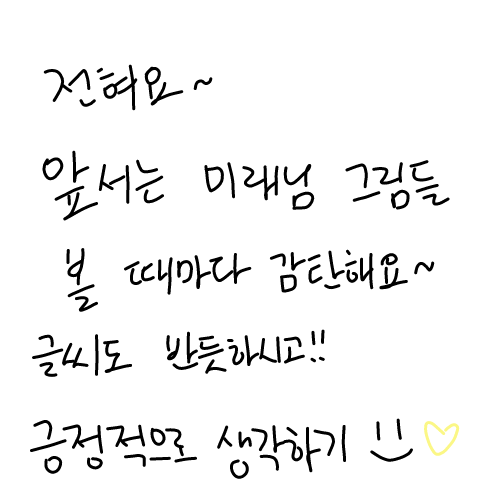 전혀요~
앞서는 미래님 그림들
볼 때마다 감탄해요~
글씨도 반듯하시고!!
긍정적으로 생각하기